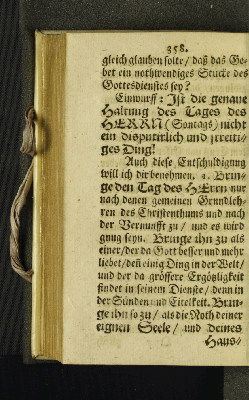 358.
gleich glauben solte / daß das Ge-
bet ein nothwendiges Stucke des
Gottesdienstes sey?
Einwurff: Ist die genaue
Haltung des Tages des
HERRN (Sontags) nicht
ein disputirlich und streiti-
ges Ding?
Auch diese Entschuldigung
will ich dir benehmen. 1. Brin-
ge den Tag des HErrn nur
nach denen gemeinen Grundleh-
ren des Christenthums und nach
der Vernunfft zu / und es wird
gnug seyn. Bringe ihn zu als
einer / der da Gott besser und mehr
liebet / den einig Ding in der Welt /
und der da grössere Ergötzligkeit
findet in seinem Dienste / denn in
der Sünden und Eitelkeit. Brin-
ge ihn so zu / als die Noth deiner
eignen Seele / und deines
Haus-